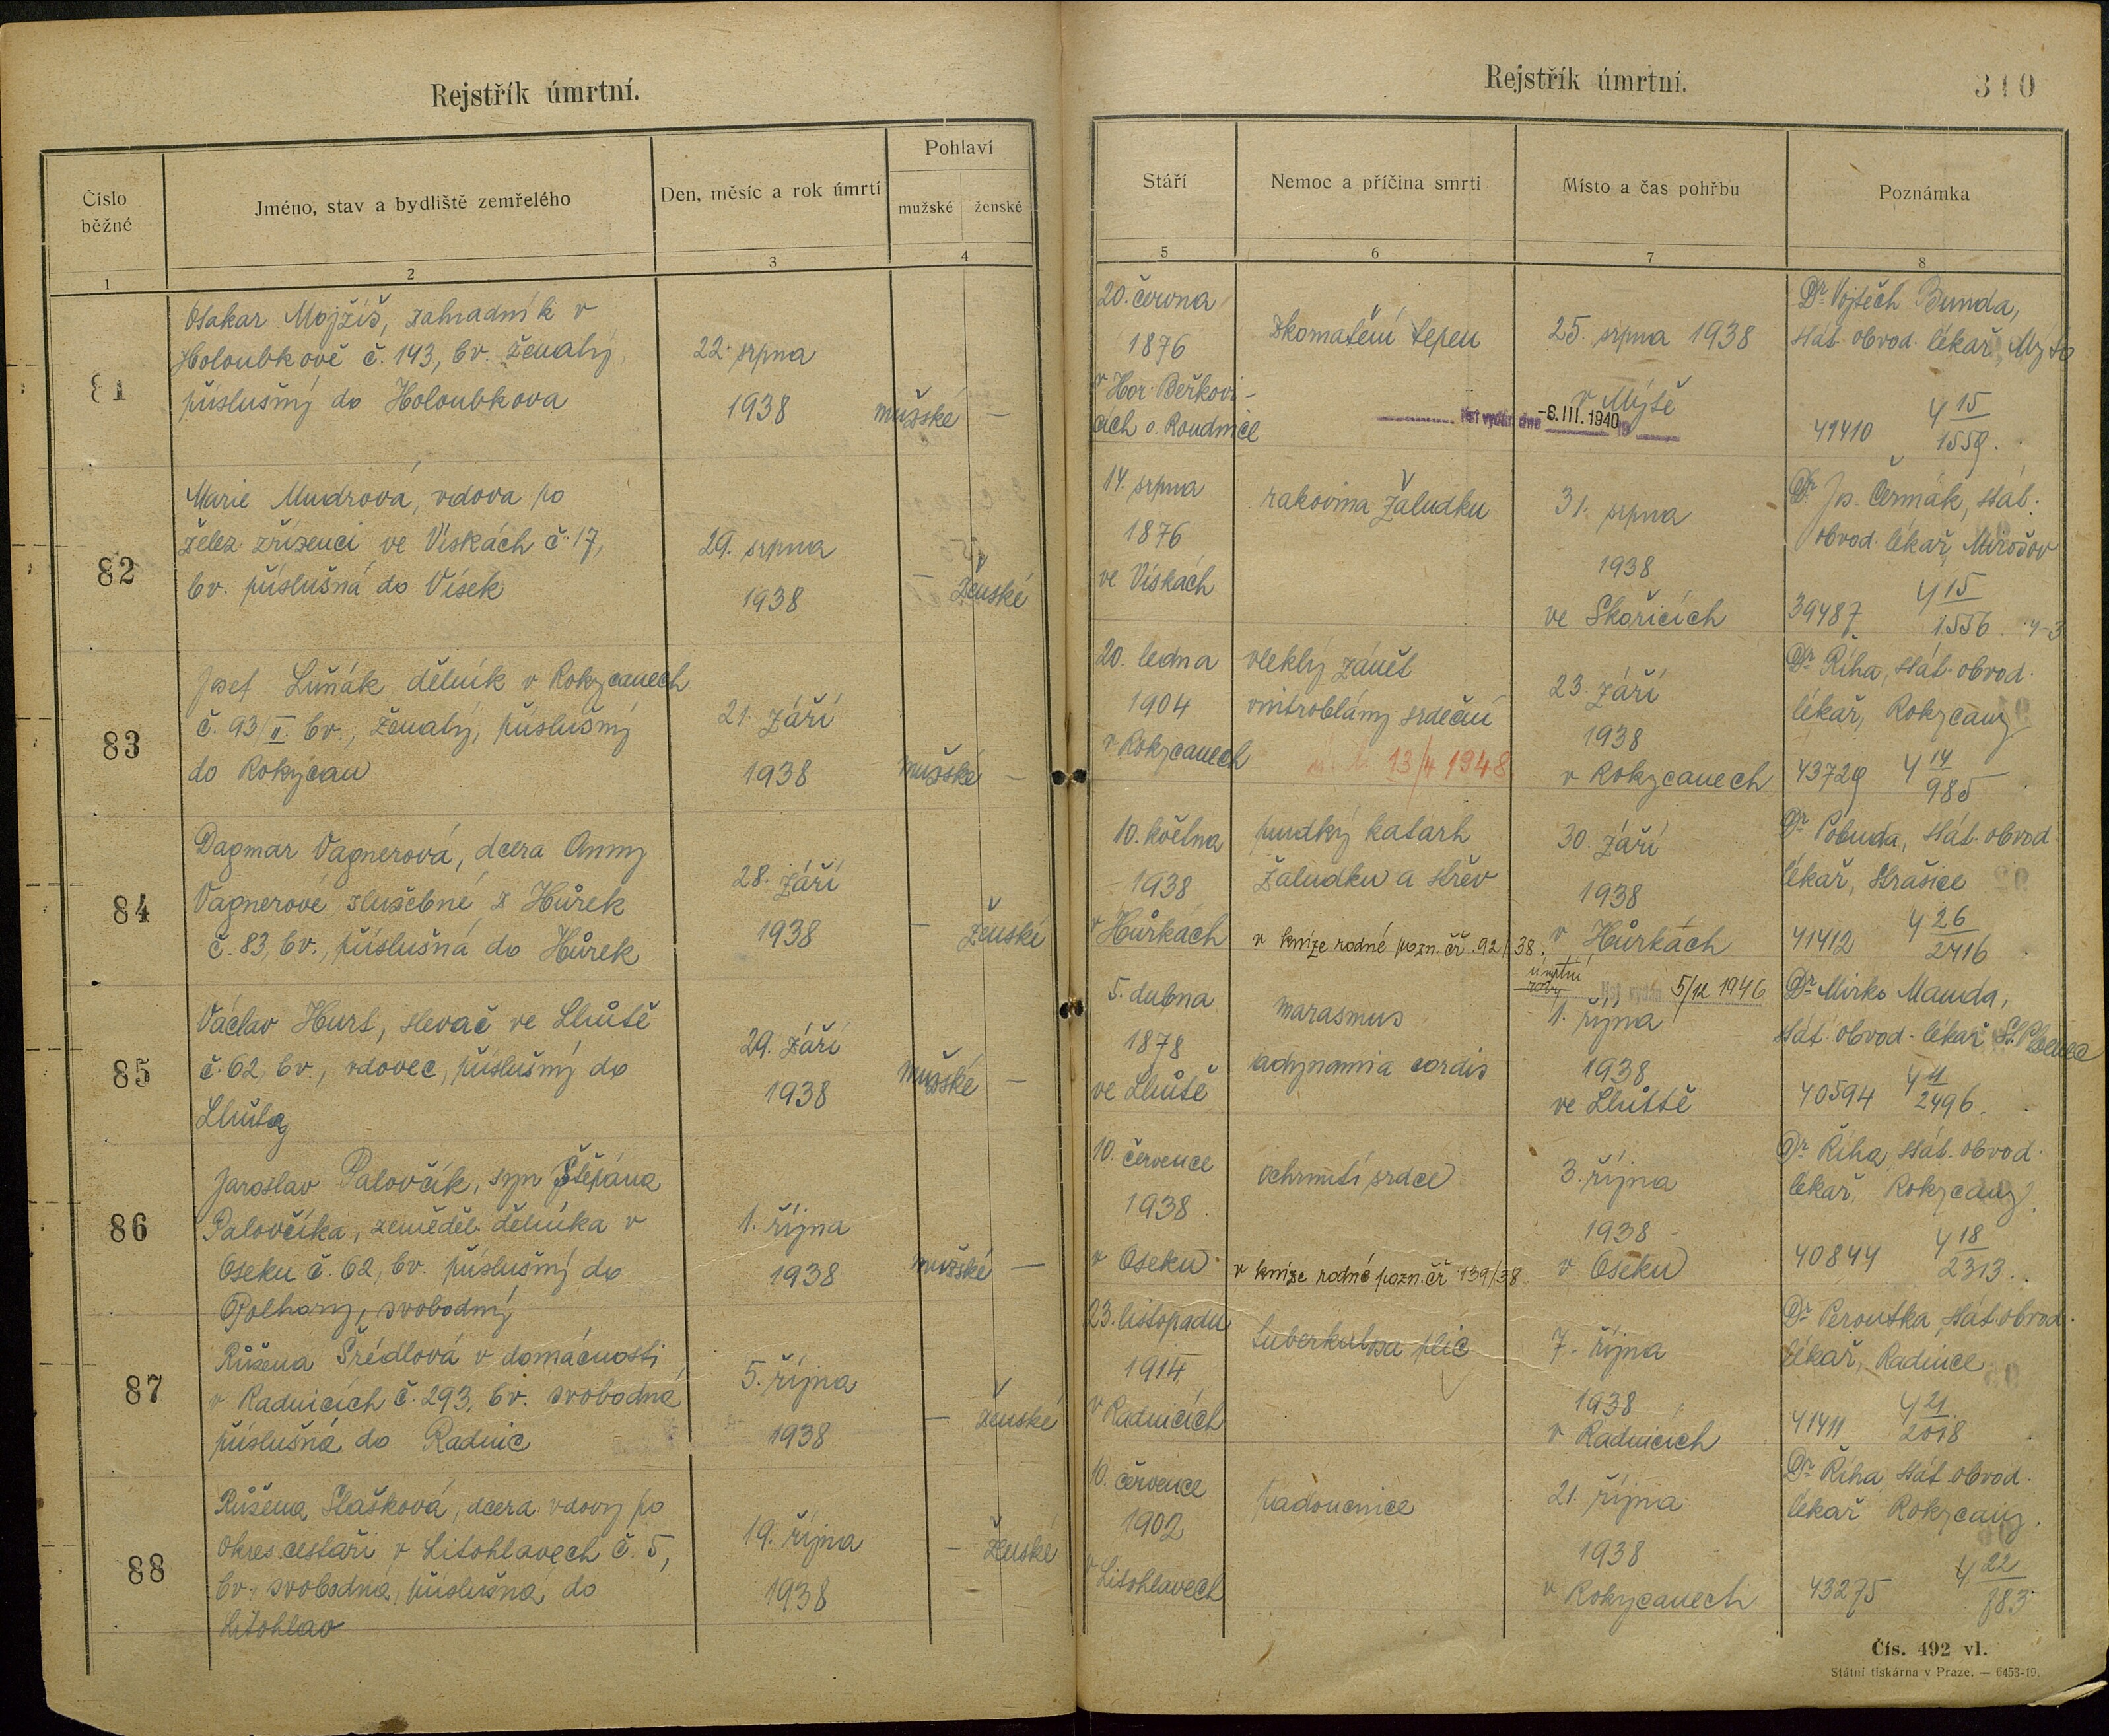 Rejstřík úmrtní.
Číslo běžné
Jméno, stav a bydliště zemřelého
Den, měsíc a rok úmrtí
Pohlaví
mužské
ženské
1
2
3
4
81
Otakar Mojžíš, zahradník v
Holoubkově č. 143, bv. ženatý,
příslušný do Holoubkova
22. srpna
1938
mužské —
82
Marie Mudrová, vdova po
želez. zřízenci ve Vískách č. 17,
bv. příslušná do Vísek
29. srpna
1938
ženské
83
Josef Luňák dělník v Rokycanech
č. 93/II. bv., ženatý, příslušný
do Rokycan
21. září
1938
mužské —
84
Dagmar Vagnerová, dcera Anny
Vagnerové služebné z Hůrek
č. 83, bv., příslušná do Hůrek
28. září
1938
— ženské
85
Václav Hurt, slevač ve Lhůtě
č. 62, bv., vdovec, příslušný do
Lhůty
29. září
1938
mužské —
86
Jaroslav Palovčík, syn Štěpána
Palovčíka, zeměděl. dělníka v
Oseku č. 62, bv. příslušný do
Polhory, svobodný
1. října
1938
mužské —
87
Růžena Šrédlová v domácnosti
v Radnicích č. 293, bv. svobodná
příslušná do Radnic
5. října
1938
— ženské
88
Růžena Slašková, dcera vdovy po
okres. cestáři v Litohlavech č. 5,
bv. svobodná, příslušná do
Litohlav
19. října
1938
— ženské
Rejstřík úmrtní.
310
Stáří
Nemoc a příčina smrti
Místo a čas pohřbu
Poznámka
5
6
7
8
20. června
1876
v Hor. Beřkovi-
cích o. Roudnice
zkornatění tepen
25. srpna 1938
v Mýtě
list vydán dne -6. III. 1940 19
Dr Vojtěch Bunda,
stát. obvod. lékař, Mýto
41410 4 15/1559.
14. srpna
1876
ve Vískách
rakovina žaludku
31. srpna
1938
ve Skořicích
Dr Jos. Čermák, stát.
obvod. lékař, Mirošov
39487 4 15/1556. 4-3
20. ledna
1904
v Rokycanech
vleklý zánět
vnitroblány srdeční
13/4 1948
23. září
1938
v Rokycanech
Dr Říha, stát. obvod.
lékař, Rokycany
43729 4 14/985
10. května
1938
v Hůrkách
prudký katarh
žaludku a střev
v knize rodné pozn. čř. 92/38.
30. září
1938
v Hůrkách
Dr Pobuda, stát. obvod.
lékař, Strašice
41412 4 26/2416
5. dubna
1878
ve Lhůtě
marasmus
adynamia cordis
úmrtní
list vydán 5/12 1946
1. října
1938
ve Lhůtě
Dr Mirko Manda,
stát. obvod. lékař St. Plzenec
40594 4 11/2496.
10. července
1938.
v Oseku
ochrnutí srdce
v knize rodné pozn. čř 139/38
3. října
1938
v Oseku
Dr Říha, stát. obvod.
lékař, Rokycany.
40844 4 18/2313.
23. listopadu
1914
v Radnicích
tuberkulosa plic
7. října
1938
v Radnicích
Dr Peroutka, stát. obvod.
lékař, Radnice
41411 4 21/2018
10. července
1902
v Litohlavech
padoucnice
21. října
1938
v Rokycanech
Dr Říha, stát. obvod.
lékař Rokycany.
43275 4 22/883
Čís. 492 vl.
Státní tiskárna v Praze. — 6453-19.